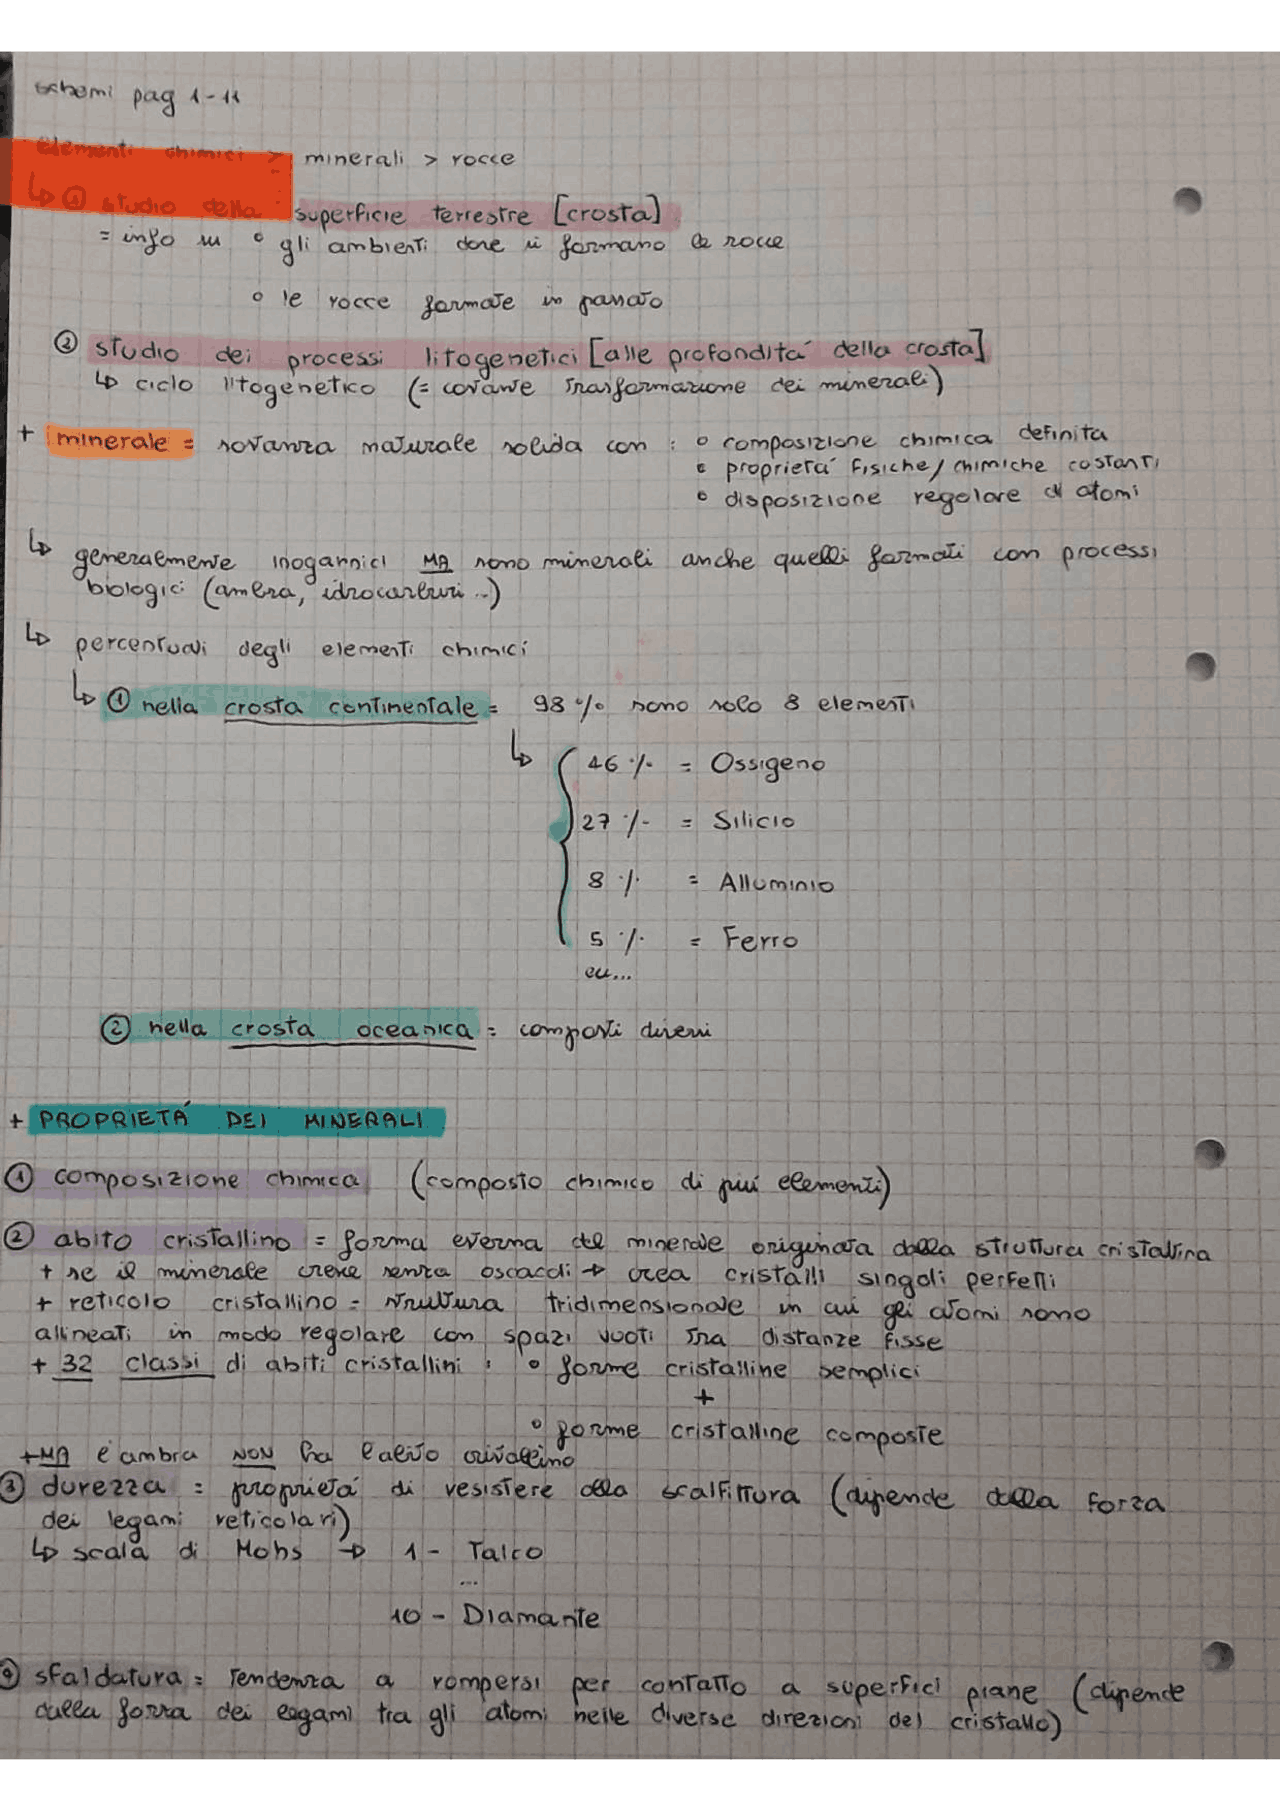 schemi pag 1-11
elementi chimici > minerali > rocce
↳ ① studio della superficie terrestre [crosta]
= info su ° gli ambienti dove si formano le rocce
° le rocce formate in passato
② studio dei processi litogenetici [alle profondità della crosta]
↳ ciclo litogenetico (= costante trasformazione dei minerali)
+ minerale = sostanza naturale solida con : ° composizione chimica definita
° proprietà fisiche/chimiche costanti
° disposizione regolare di atomi
↳ generalmente inogarnici MA sono minerali anche quelli formati con processi
biologici (ambra, idrocarburi ..)
↳ percentuali degli elementi chimici
↳ ① nella crosta continentale = 98 % sono solo 8 elementi
↳ { 46 % = Ossigeno
27 % = Silicio
8 % = Alluminio
5 % = Ferro
ecc...
② nella crosta oceanica = composti diversi
+ PROPRIETÁ DEI MINERALI
① composizione chimica (composto chimico di più elementi)
② abito cristallino = forma esterna del minerale originata dalla struttura cristallina
+ se il minerale cresce senza oscacoli → crea cristalli singoli perfetti
+ reticolo cristallino = struttura tridimensionale in cui gli atomi sono
allineati in modo regolare con spazi vuoti tra distanze fisse
+ 32 classi di abiti cristallini : ° forme cristalline semplici
+
° forme cristalline composte
+MA l'ambra NON ha l'abito cristallino
③ durezza = proprietà di resistere alla scalfittura (dipende dalla forza
dei legami reticolari)
↳ scala di Mohs → 1 - Talco
...
10 - Diamante
④ sfaldatura = tendenza a rompersi per contatto a superfici piane (dipende
dalla forza dei legami tra gli atomi nelle diverse direzioni del cristallo)